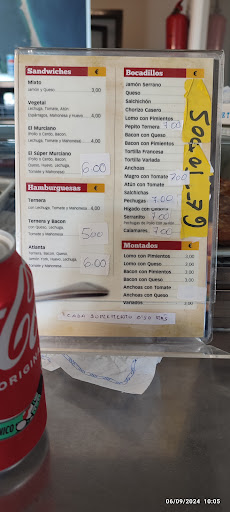 Sandwiches €
Mixto
Jamón y Queso 3,00
Vegetal
Lechuga, Tomate, Atún
Espárragos, Mahonesa y Huevo 4,00
El Murciano
Pollo a Cerdo, Bacon,
Lechuga, Tomate y Mahonesa 4,00
El Súper Murciano
Pollo a Cerdo, Bacon,
Queso, Huevo, Lechuga,
Tomate y Mahonesa 6,00
Hamburguesas €
Ternera
con Lechuga, Tomate y Mahonesa 4,00
Ternera y Bacon
con Queso, Lechuga,
Tomate y Mahonesa 5,00
Atlanta
Ternera, Bacon, Queso,
Tomate y Mahonesa 6,00
Bocadillos €
Jamón Serrano
Queso
Salchichón
Chorizo Casero
Lomo con Pimientos
Pepito Ternera
Bacon con Queso
Bacon con Pimientos
Tortilla Francesa
Tortilla Variada
Anchoas
Magro con Tomate 7,00
Atún con Tomate
Salchichas
Pechugas 7,00
Hígado con
Serranito 7,00
Calamares 7,00
Montados €
Lomo con Pimientos 3,00
Lomo con Queso 3,00
Bacon con Pimientos 3,00
Bacon con Queso 3,00
Anchoas con Tomate
Anchoas con Queso 3,00
Variados 3,00
CADA SUPLEMENTO 0'50 MAS
ORIGIN
06/09/2024 10:05